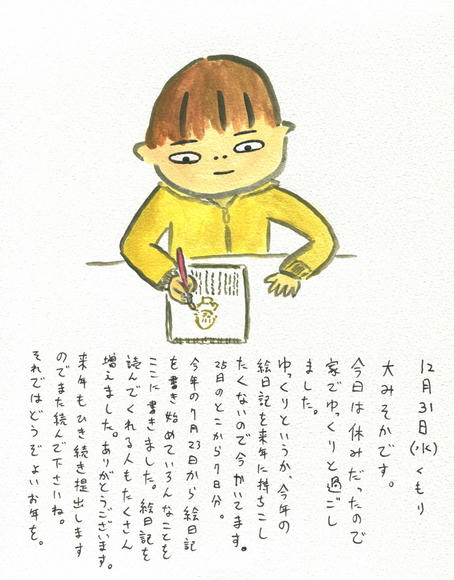 12月31日(水)くもり
大みそかです。
今日は休みだったので
家でゆっくりと過ごし
ました。
ゆっくりというか、今年の
絵日記を来年に持ちこし
たくないので今かいてます。
25日のとこから7日分。
今年の7月23日から絵日記
を書き始めていろんなことを
ここに書きました。絵日記を
読んでくれる人もたくさん
増えました。ありがとうございます。
来年もひき続き提出します
のでまた読んで下さいね。
それではどうぞよいお年を。